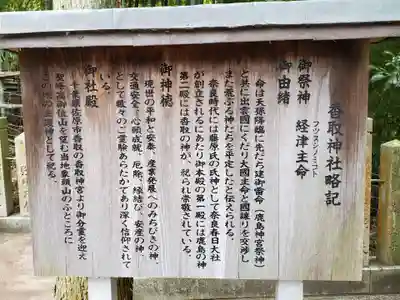 香取神社略記
御祭神 経津主命
フツヌシノミコト
御由緒
命は天孫降臨に先だち建御雷命(鹿島神宮祭神)
と共に出雲國にくだり大國主命と國譲りを交渉し
また荒ぶる神たちを平定したと伝えられる。
奈良時代には藤原氏の氏神として奈良春日大社
が創立されるにあたり御本殿の第一殿には鹿島の神
第二殿には香取の神が、祀られ崇敬されている。
御神徳
現世の平和と安泰、産業発展へのみちびきの神
交通安全、心願成就、厄除、縁結び、安産の神
として数々のご霊験あらたかであり深く信仰されて
いる。
御社殿
千葉県佐原市香取の香取神宮より御分霊を迎え
聖峰高御位山を望む当地象頭山のふところに
この地の土護神として祀る。